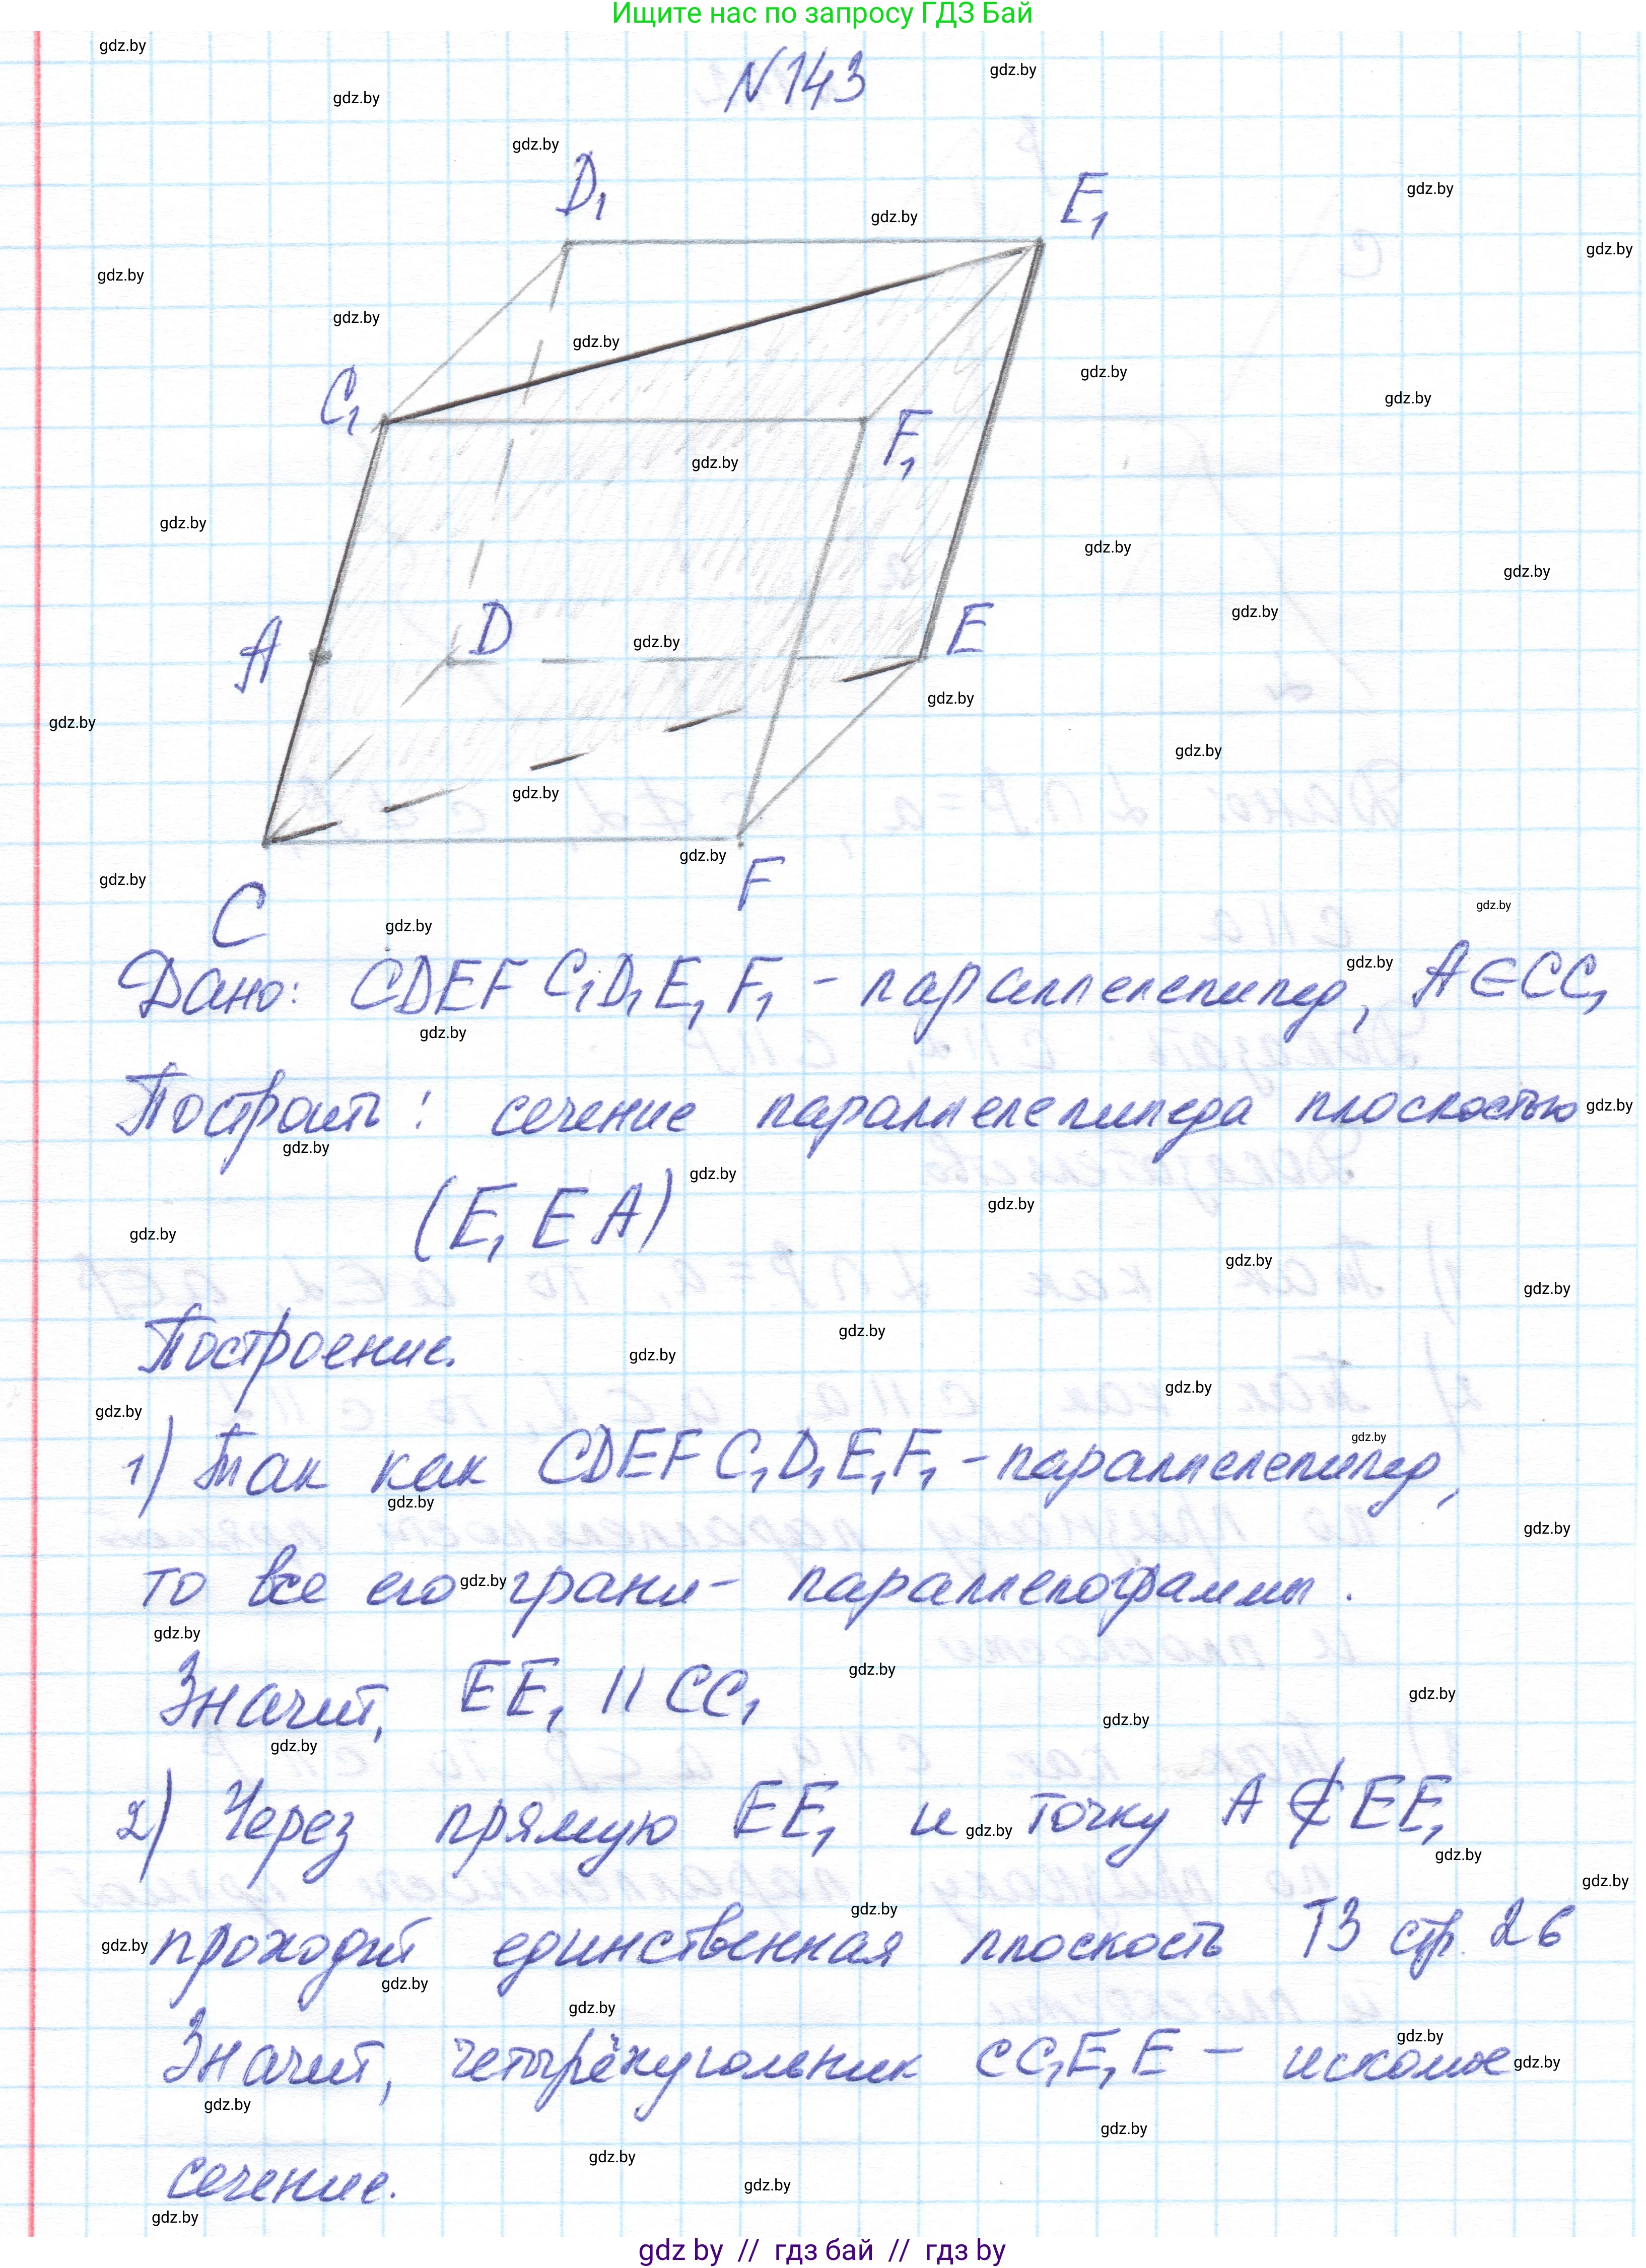 Ищите нас по запросу ГДЗ Бай
N 143
D₁
E₁
C₁
F₁
A
D
E
C
F
Дано: CDEF C₁D₁E₁F₁ - параллелепипед, A∈CC₁
Построить: сечение параллелепипеда плоскостью
(E₁EA)
Построение.
1) Так как CDEF C₁D₁E₁F₁ - параллелепипед,
то все его грани - параллелограммы.
Значит, EE₁ || CC₁
2) Через прямую EE₁ и точку A ∉ EE₁
проходит единственная плоскость Т3 стр. 26
Значит, четырёхугольник CC₁E₁E - искомое
сечение.
gdz.by
gdz by // гдз бай // гдз by